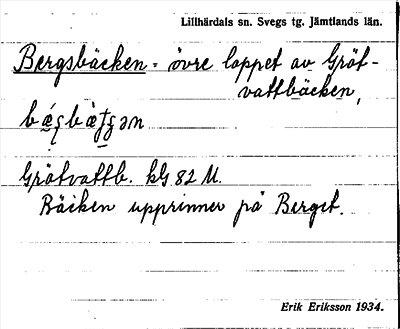 Lillhärdals sn. Svegs tg. Jämtlands län.
Bergsbäcken = övre loppet av Gröt-
vattbäcken,
Grötvattb. kG 82 U.
Bäcken upprinner på Berget.
Erik Eriksson 1934.